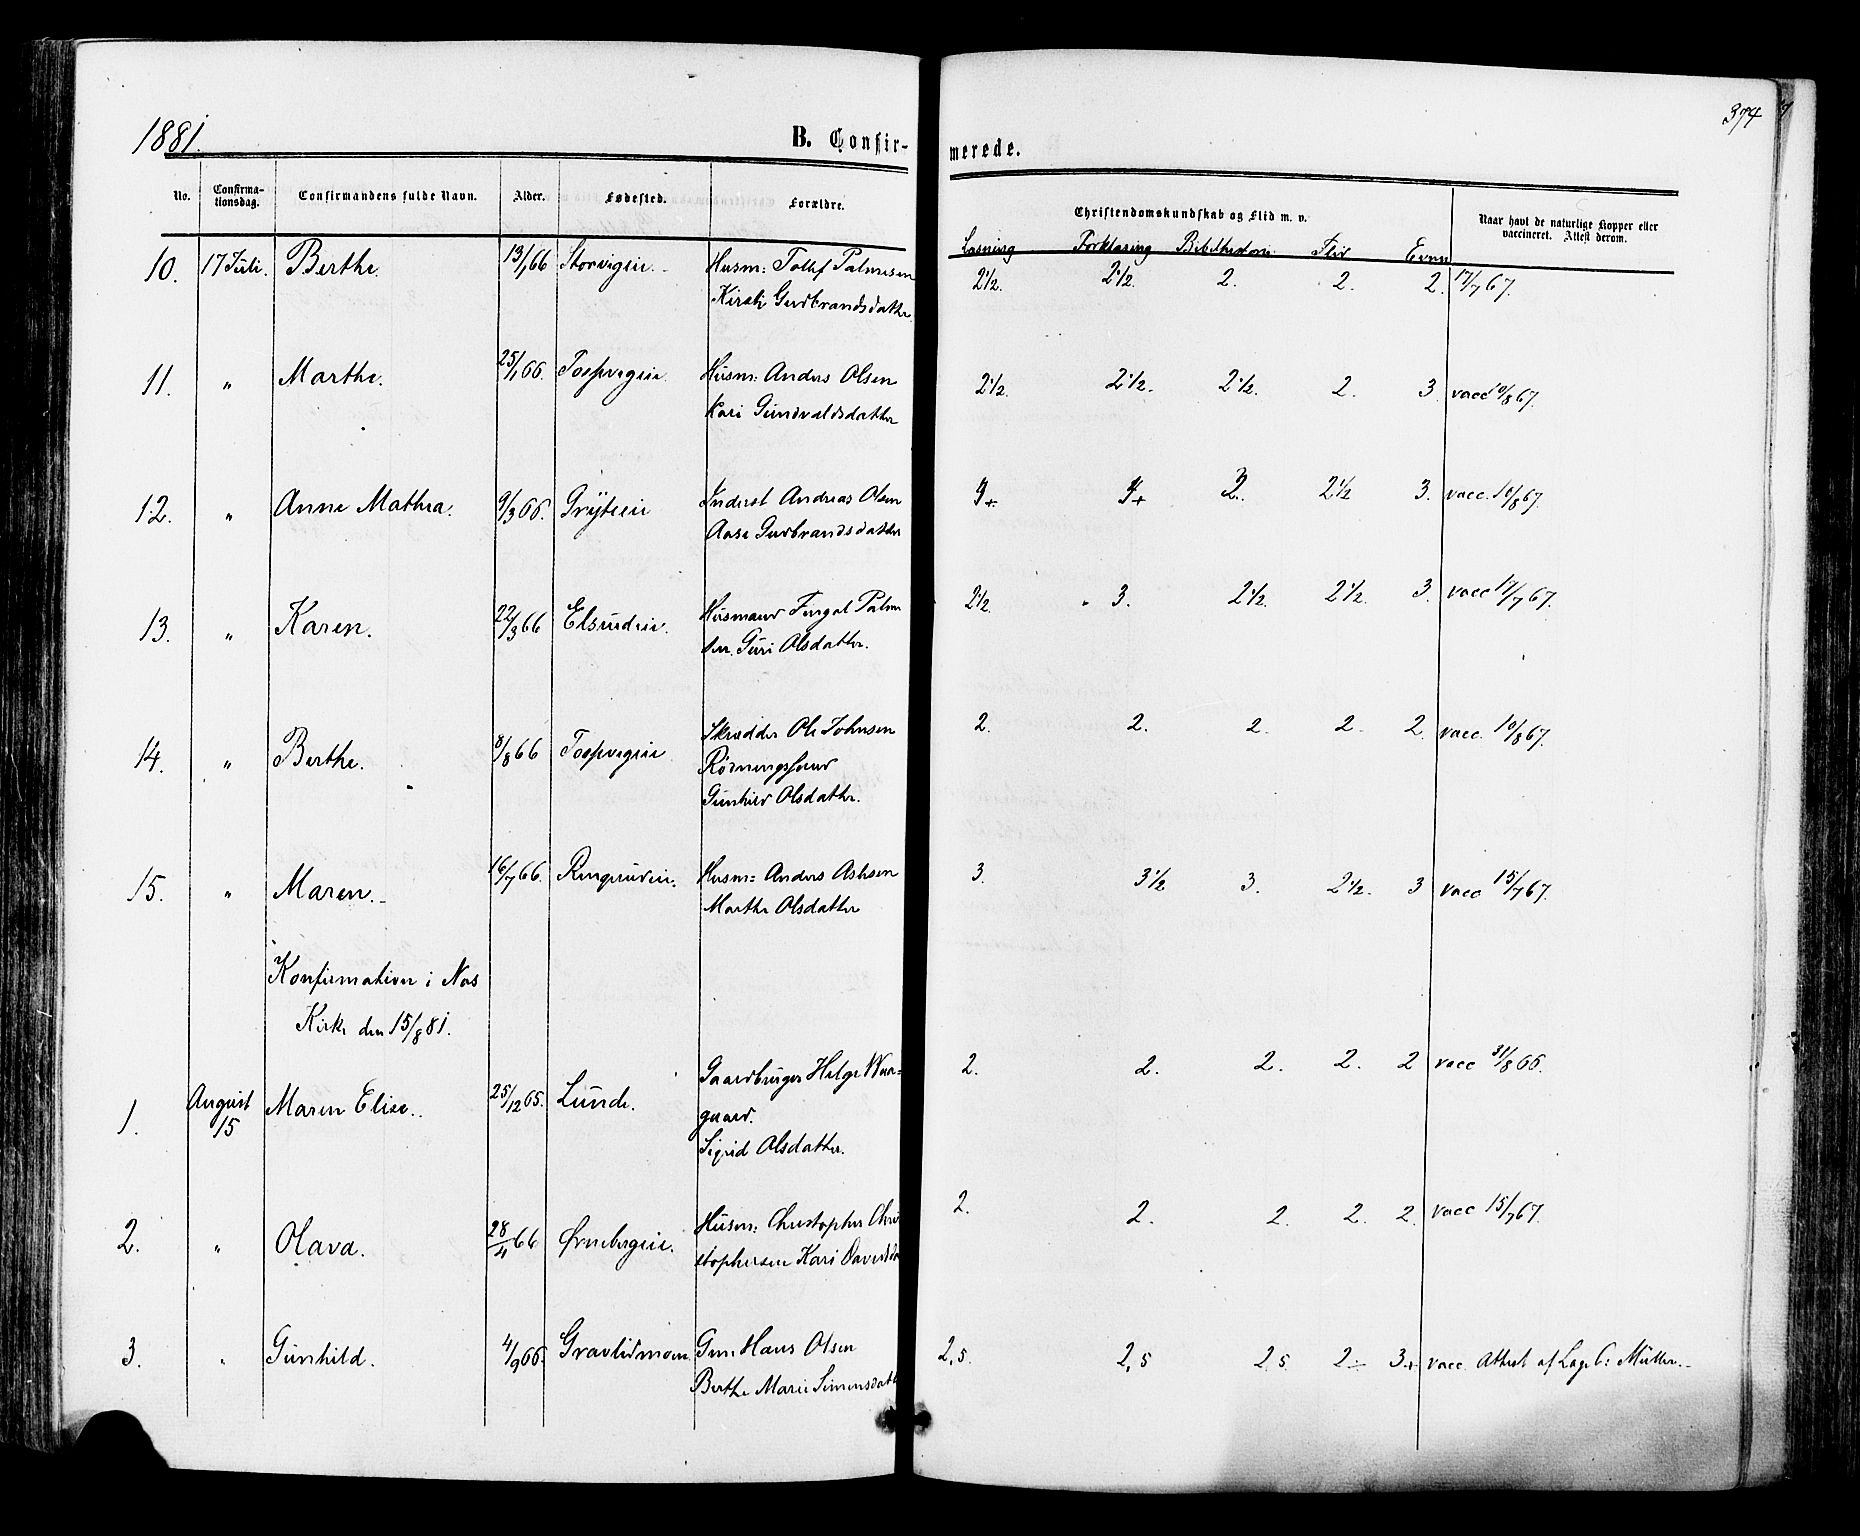 1881.
B. Confir-
merede.
374
No.
Confirma-
tionsdag.
Confirmandens fulde Navn.
Alder.
Fødested.
Forældre.
Christendomskundskab og Flid m. v.
Naar havt de naturlige Kopper eller
vaccineret. Attest derom.
Læsning Forklaring Bibelhistori Flid Evner
10. 17 Juli. Berthe. 13/1 66 Storvigeie. Husm: Tollef Palmesen 2 1/2. 2 1/2. 2. 2. 2. 17/7 67.
Kirsti Gudbrandsdatter
11. " Marthe. 25/1 66. Tospvegeie. Husm: Anders Olsen 2 1/2. 2 1/2. 2 1/2. 2. 3. vacc 10/8 67.
Kari Gundvaldsdatter
12. " Anne Mathea. 9/3 66. Gryteeie Inderst Andreas Olsen 4+ 4+ 3. 2 1/2 3. vacc. 10/8 67.
Aase Gudbrandsdatter
13. " Karen. 22/3 66 Elsrudeie. Husmand Fingal Palme 2 1/2. 3. 2 1/2. 2 1/2. 3. vacc 17/7 67.
sen. Guri Olsdatter.
14. " Berthe. 8/8 66 Tospvegeie Skrædder Ole Johnsen 2. 2. 2. 2. 2. vacc. 10/8 67.
Gunhild Olsdatter.
15. " Maren. 16/7 66. Ringerudeie. Husm: Anders Aslesen 3. 3 1/2 3. 2 1/2. 3 vacc 15/7 67.
Marthe Olsdatter
Konfirmation i Nes
Kirke den 15/8 81.
1. August 15 Maren Elise. 25/12 65. Lunde. Gaardbruger Helge Waa- 2. 2. 2. 2. 2 vacc 31/8 66.
gaard.
Sigrid Olsdatter.
2. " Olava. 28/4 66 Ørnebergeie. Husm: Christopher Chri 2. 2. 2. 2. 2. vacc 15/7 67.
stophersen Kari Davidsda
3. " Gunhild. 4/9 66. Gravlidmoen Gm: Hans Olsen 2,5. 2,5 2.5. 2÷ 3+ vacc. Attest af Læge C: Müller.
Berthe Marie Simensdatt